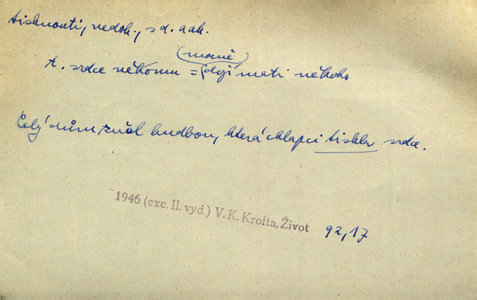 tisknouti, nedok., s d. a ak.
(marně)
t. srdce někomu = dojímati někoho
Celý dům zněl hudbou, která chlapci tiskla srdce.
1946 (exc. II. vyd.) V. K. Krofta, Život 92,17